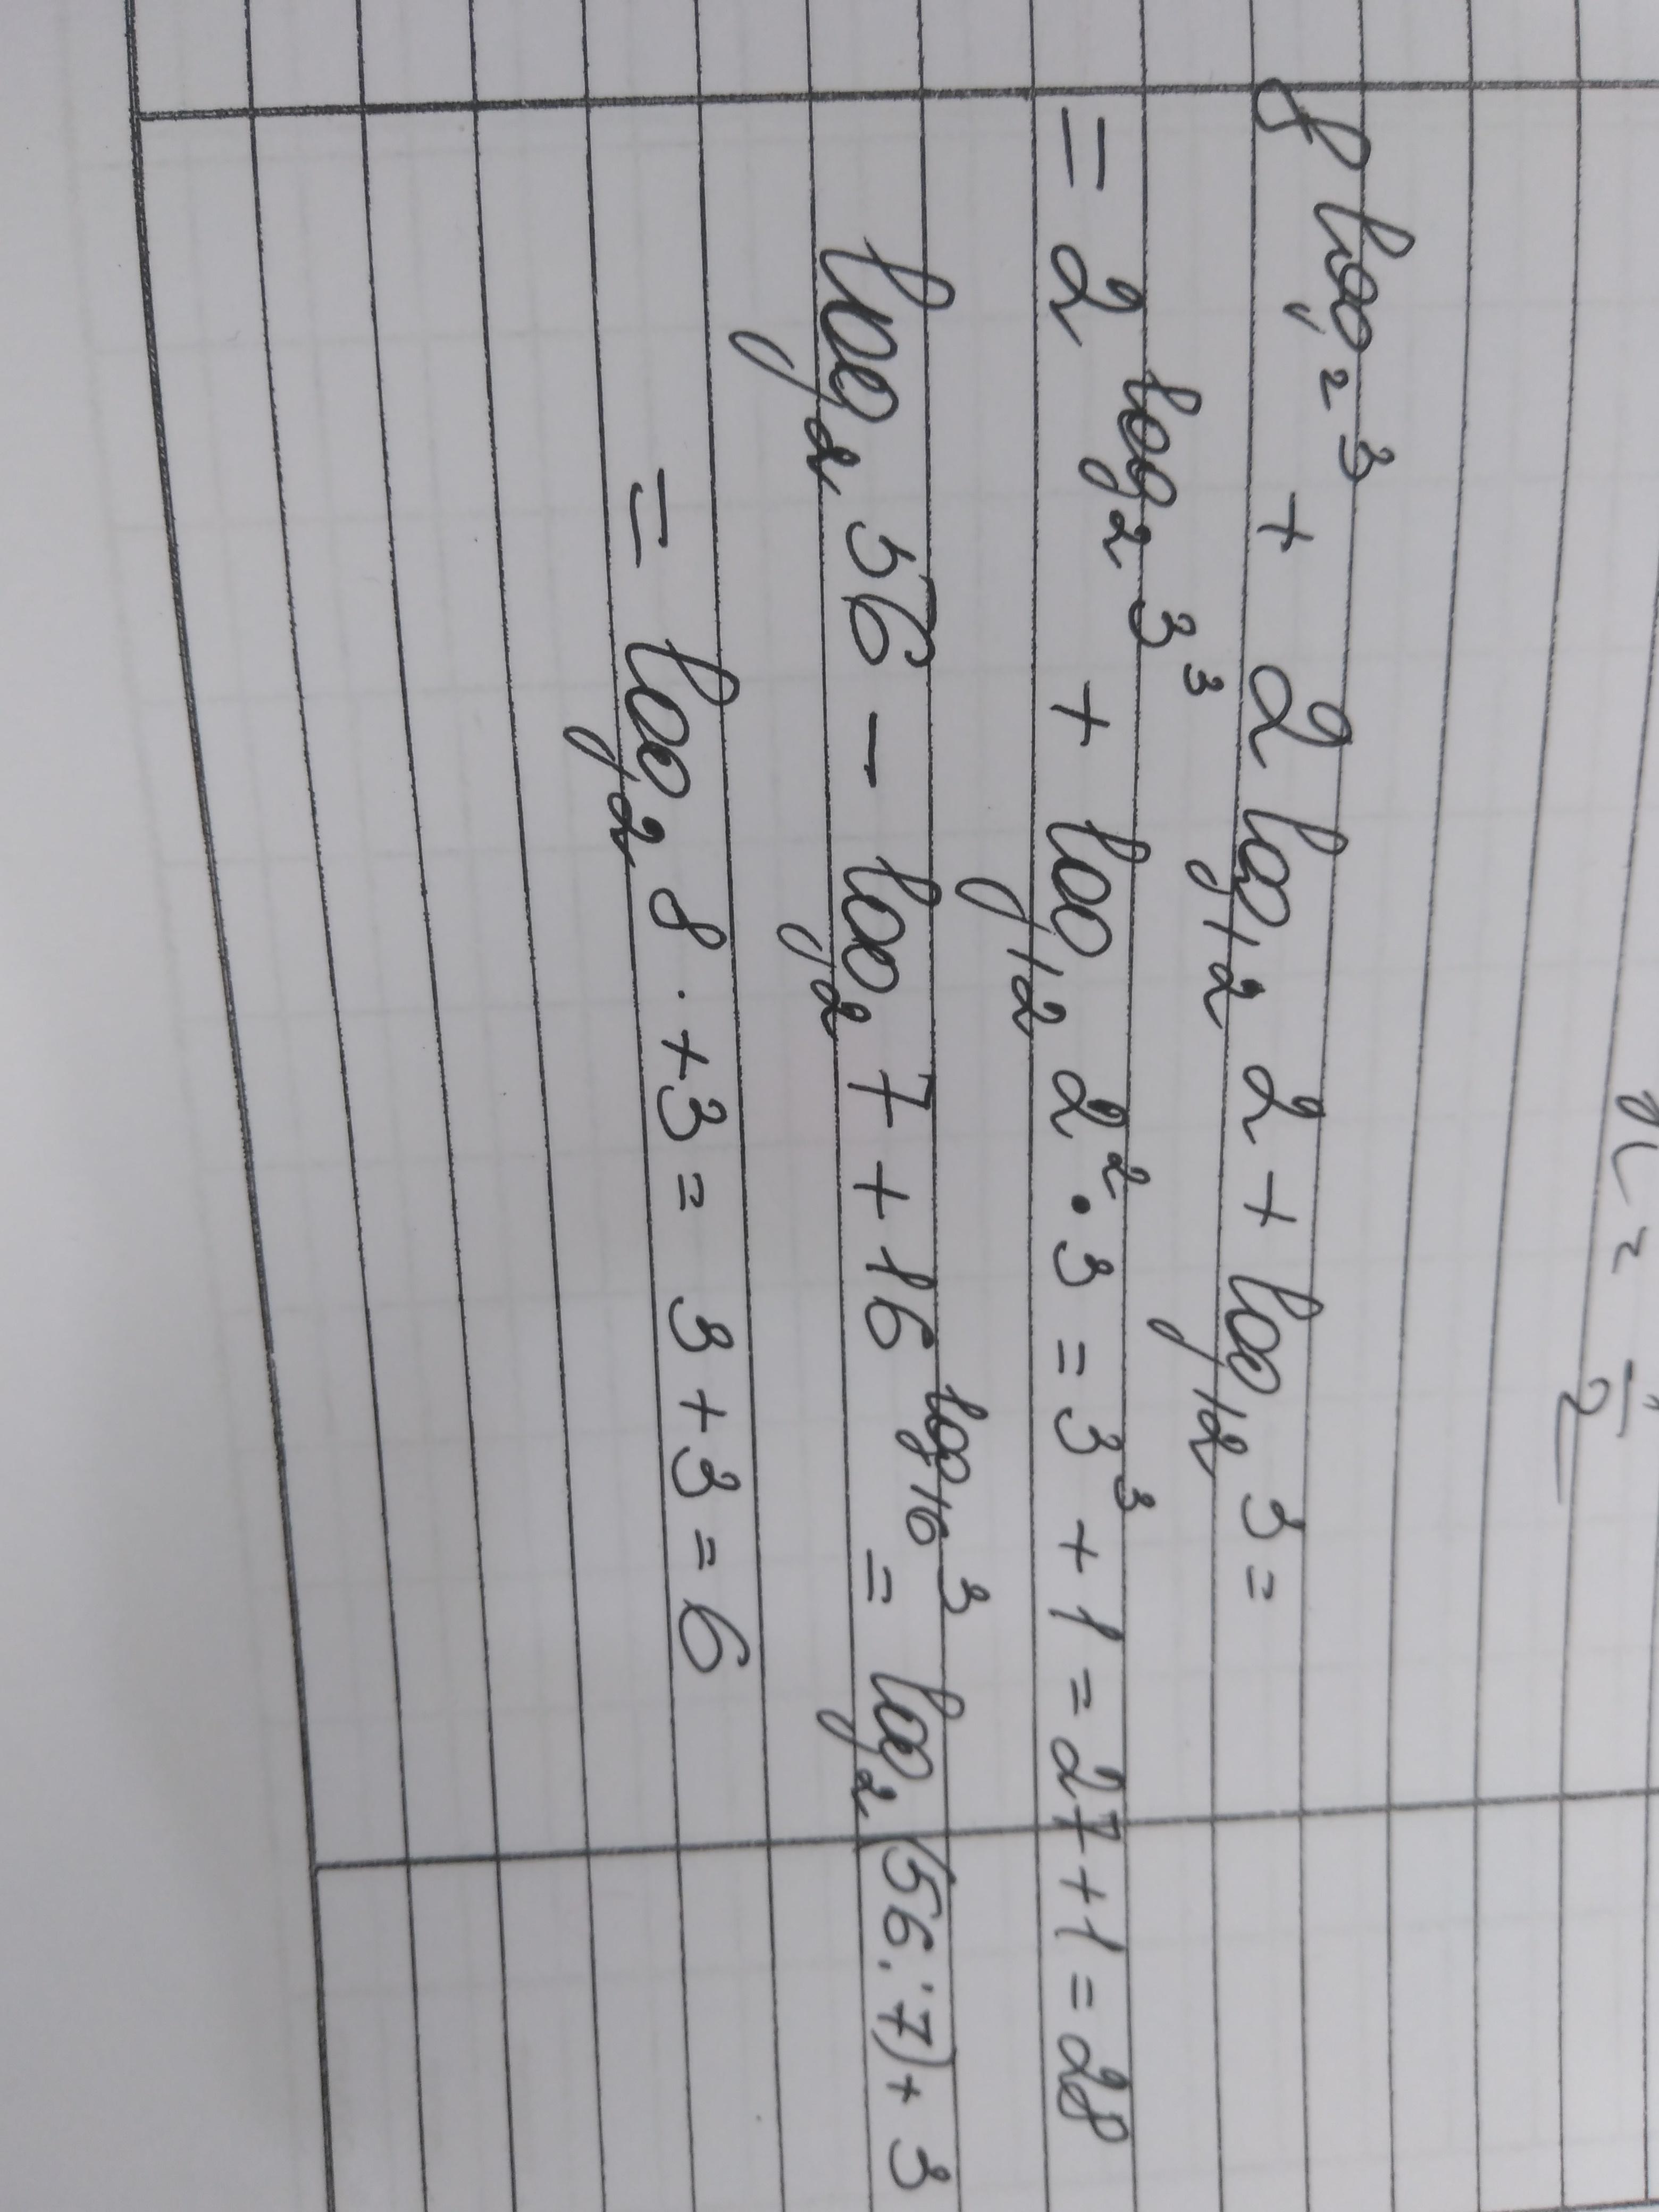 x = 1/2
8^(log₂ 3) + 2 log₁₂ 2 + log₁₂ 3 =
= 2^(log₂ 3³) + log₁₂ 2² · 3 = 3³ + 1 = 27 + 1 = 28
log₂ 56 − log₂ 7 + 16^(log₁₆ 3) = log₂ (56 : 7) + 3
= log₂ 8 · + 3 = 3 + 3 = 6